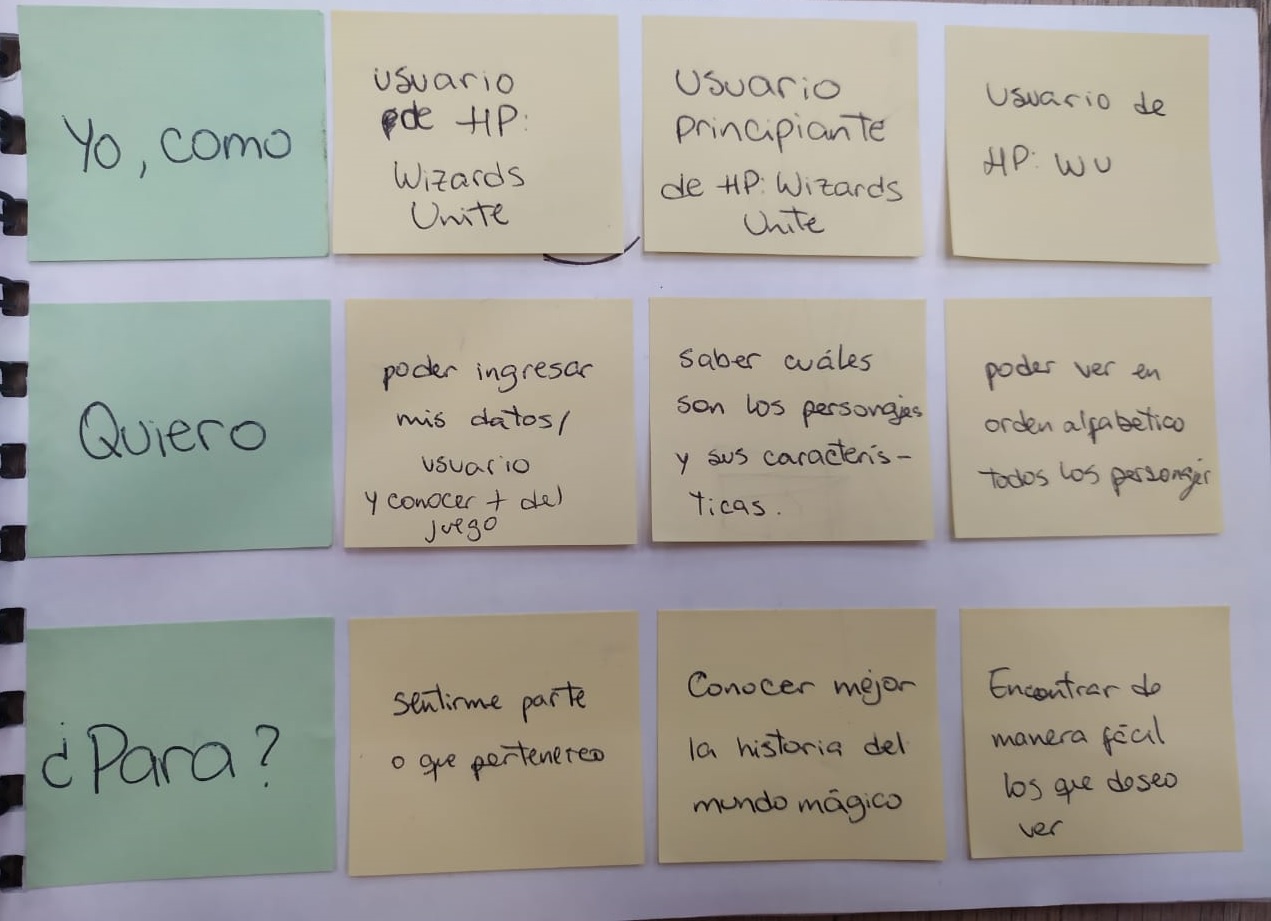 Yo, como
usuario
de HP:
Wizards
Unite
Usuario
principiante
de HP: Wizards
Unite
Usuario de
HP: WU
Quiero
poder ingresar
mis datos/
usuario
y conocer + del
juego
saber cuáles
son los personajes
y sus caracterís-
ticas.
poder ver en
orden alfabetico
todos los personajes
¿Para?
sentirme parte
o que pertenezco
Conocer mejor
la historia del
mundo mágico
Encontrar de
manera fácil
los que deseo
ver